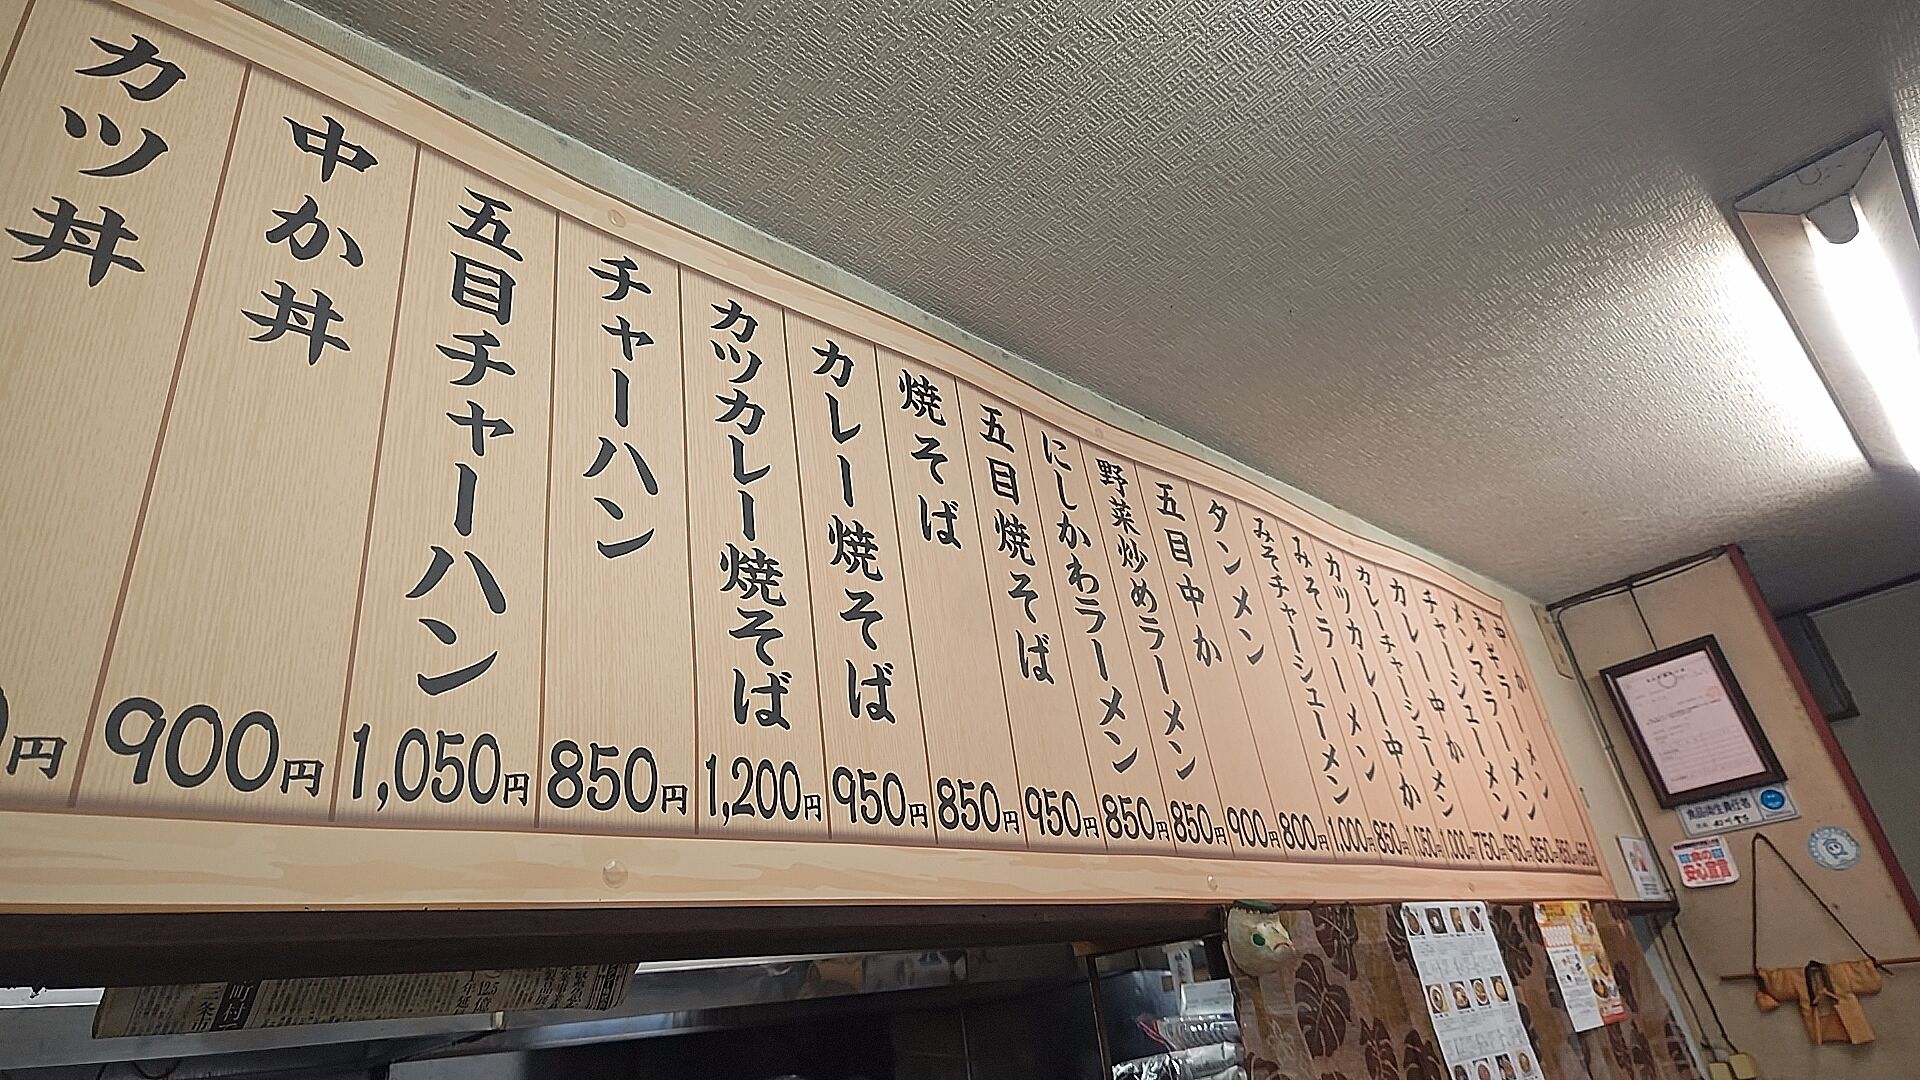 中か
ネギラーメン
メンマラーメン 850円
チャーシューメン 950円
カレー中か 750円
カレーチャーシューメン 1,000円
カツカレー中か 1,050円
みそラーメン 850円
みそチャーシューメン 1,000円
タンメン 800円
五目中か 900円
野菜炒めラーメン 850円
にしかわラーメン 850円
五目焼そば 950円
焼そば 850円
カレー焼そば 950円
カツカレー焼そば 1,200円
チャーハン 850円
五目チャーハン 1,050円
中か丼 900円
カツ丼 円
食品衛生責任者
食の
安心宣言